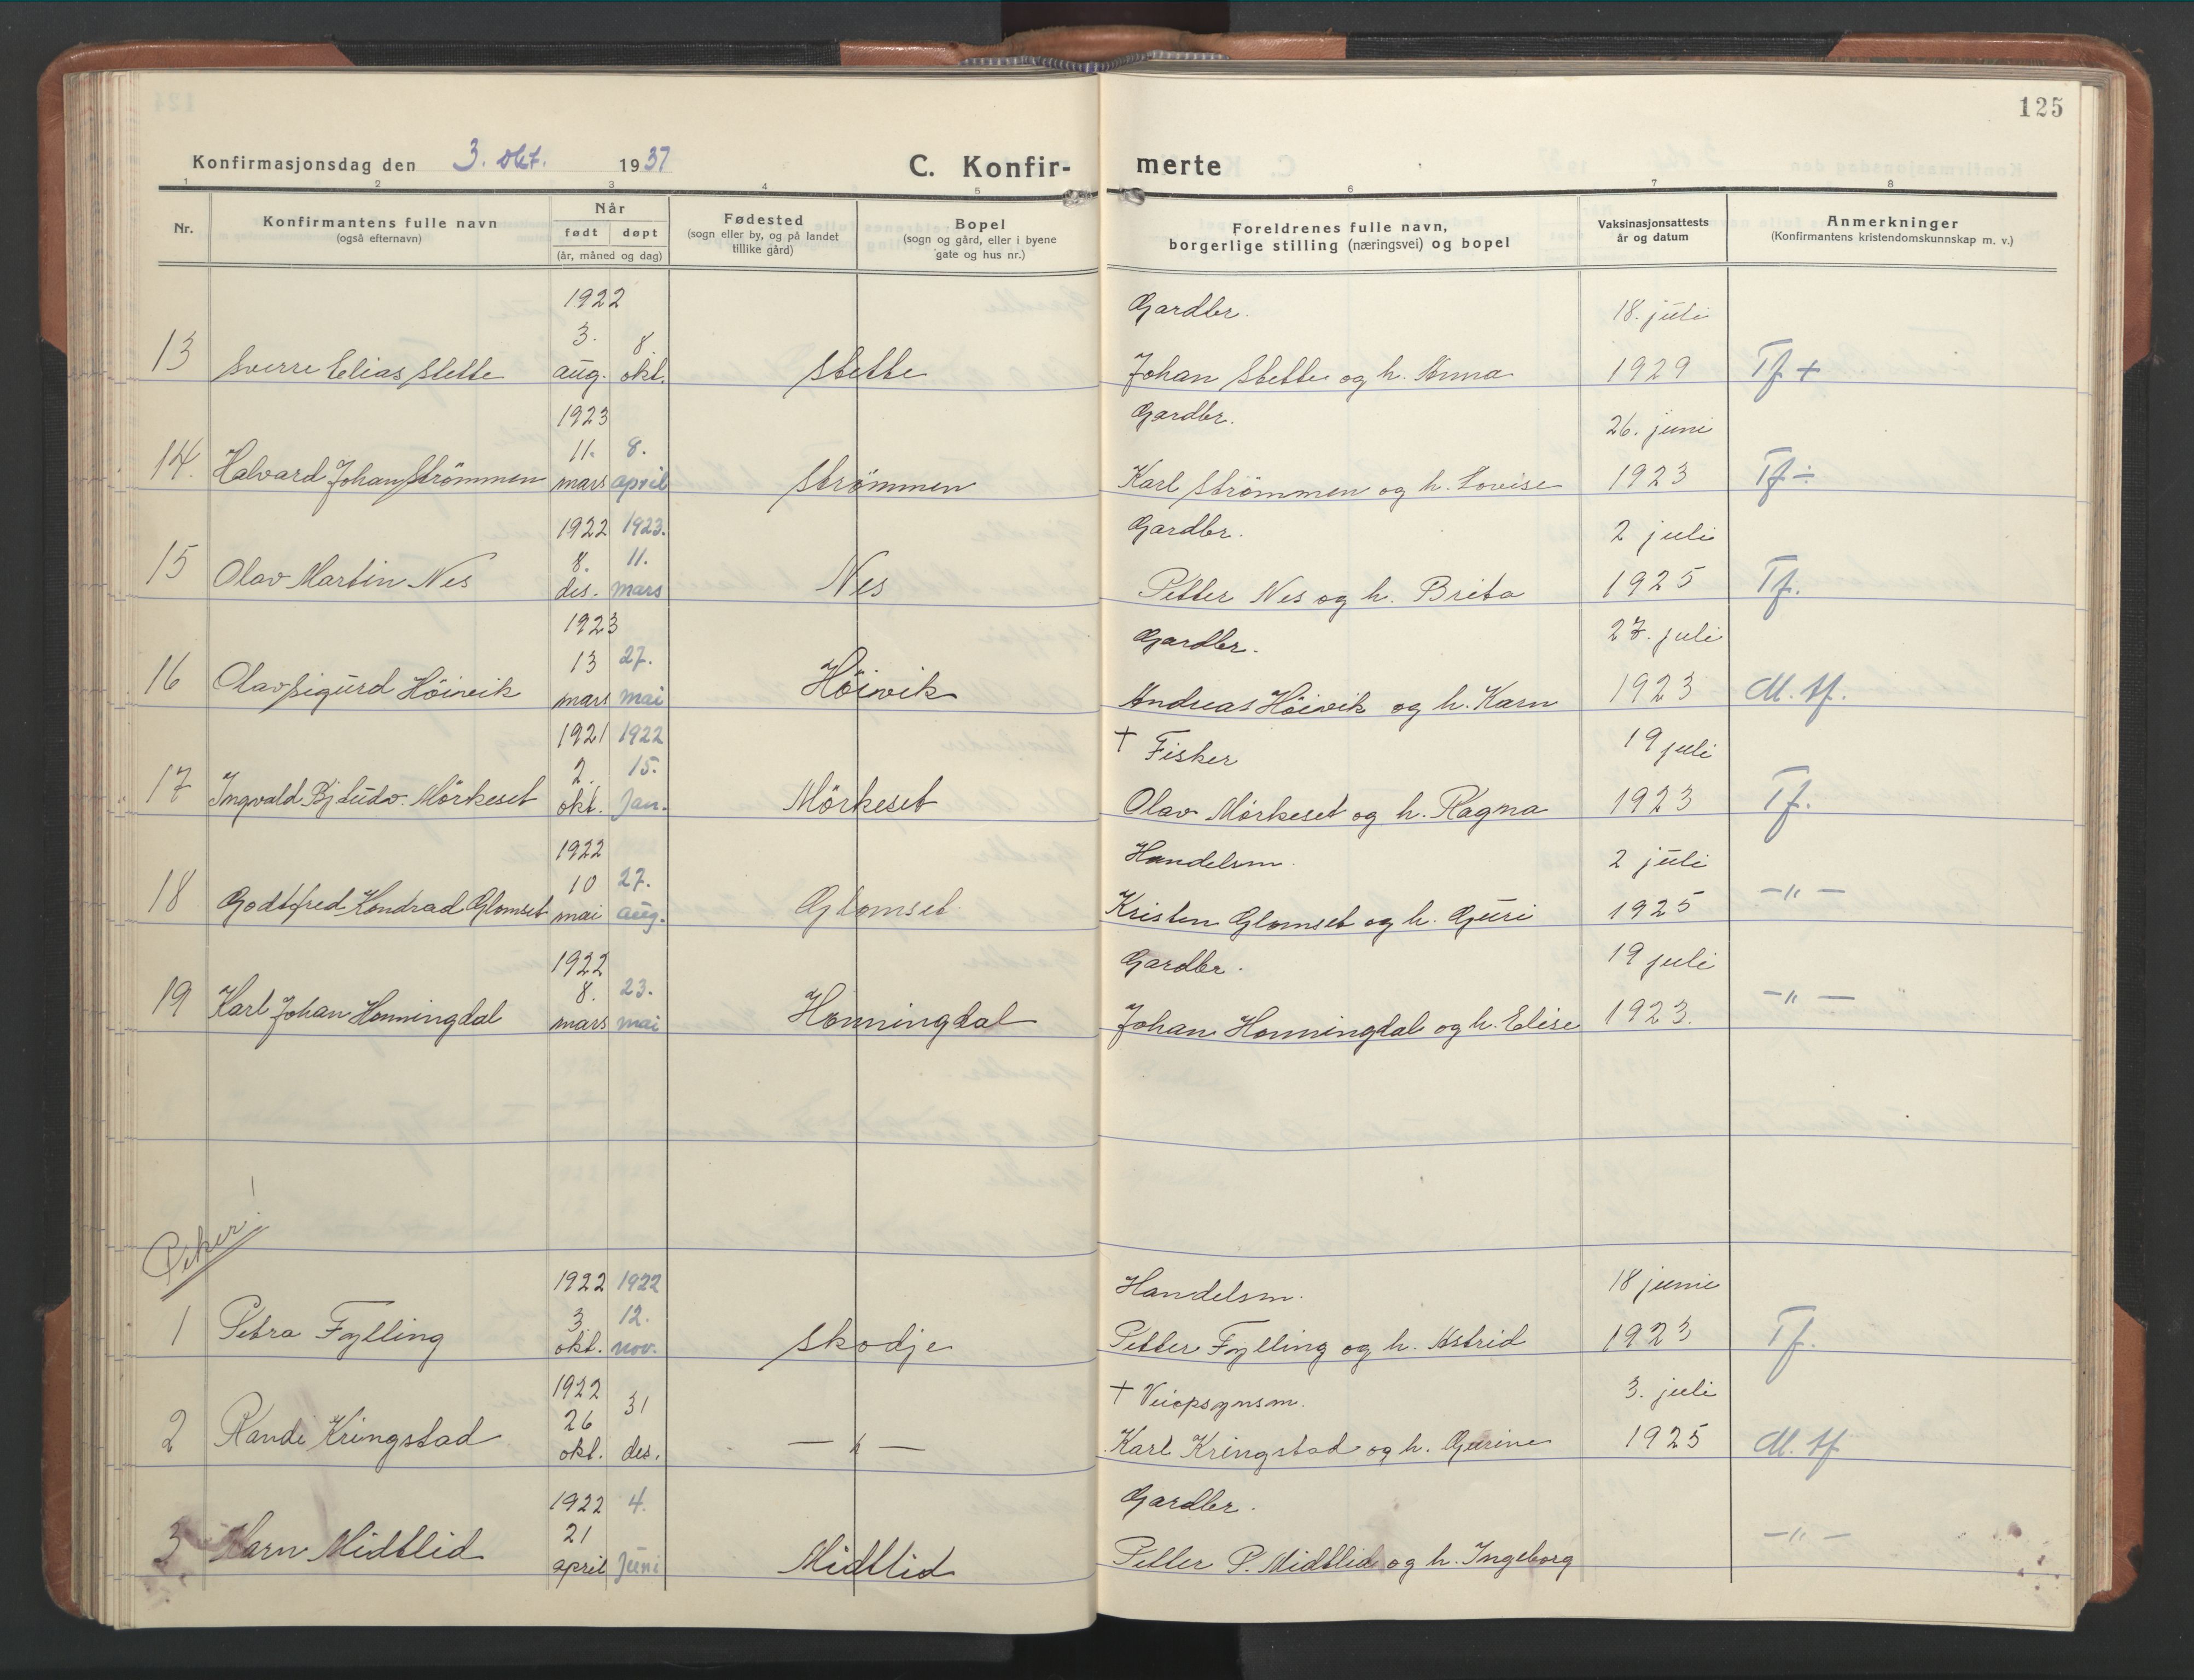 125
Konfirmasjonsdag den 3. okt. 1937
C. Konfir-
merte
1 2 3 4 5 6 7 8
Nr.
Konfirmantens fulle navn
(også efternavn)
Når
født døpt
(år, måned og dag)
Fødested
(sogn eller by, og på landet
tillike gård)
Bopel
(sogn og gård, eller i byene
gate og hus nr.)
Foreldrenes fulle navn,
borgerlige stilling (næringsvei) og bopel
Vaksinasjonsattests
år og datum
Anmerkninger
(Konfirmantens kristendomskunnskap m. v.)
1922 Gardbr. 18. juli
3. 8.
13 Sverre Elias Stette aug. okt. Stette Johan Stette og h. Anna 1929 Tf +
1923 Gardbr. 26. juni
11. 8.
14. Halvard Johan Strömmen mars april Strömmen Karl Strömmen og h. Lovise 1923 Tf ÷
1922 1923. Gardbr. 2 juli
8. 11.
15 Olav Martin Nes des. mars Nes Petter Nes og h. Brita 1925 Tf.
1923 Gardbr. 27. juli
13 27.
16 Olav Sigurd Höivik mars mai Höivik Andreas Höivik og h. Karn 1923 M. tf.
1921 1922 † Fisker 19 juli
2. 15.
17 Ingvald Bj. Ludv. Mörkeset okt. Jan. Mörkeset Olav Mörkeset og h. Ragna 1923 Tf.
1922 Handelsm. 2 juli
10 27.
18 Godtfred Kondrad Glomset mai aug. Glomset Kristen Glomset og h. Guri 1925 —"—
1922 Gardbr. 19 juli
8. 23.
19 Karl Johan Honningdal mars mai Honningdal Johan Honningdal og h. Elise 1923. —"—
1922 1922 Handelsm. 18 juni
3. 12.
1 Petra Fylling okt. nov. Skodje Petter Fylling og h. Astrid 1923 Tf.
1922 † Veiopsynsm. 3. juli
26 31
2 Randi Kringstad okt. des. —"— Karl Kringstad og h. Gurine 1925 M. tf
1922 4. Gardbr.
21
3 Karn Midtlid april Juni Midtlid Petter P. Midtlid og h. Ingeborg —"—